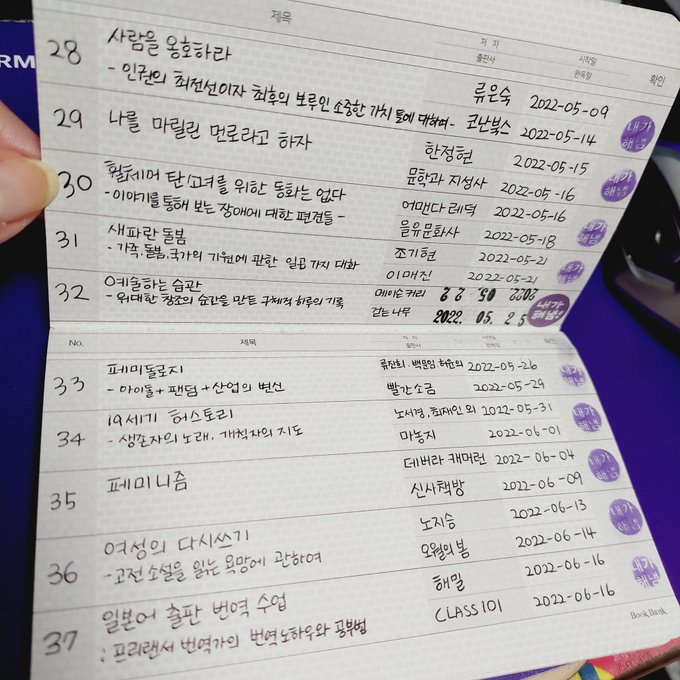 RM
제목 저자 시작일
출판사 완독일 확인
28 사람을 옹호하라 류은숙 2022-05-09
- 인권의 최전선이자 최후의 보루인 소중한 가치 틈에 대하여 - 코난북스 2022-05-14 내가 해냄
29 나를 마릴린 먼로라고 하자 한정현 2022-05-15
문학과 지성사 2022-05-16 내가 해냄
30 휠체어 탄 소녀를 위한 동화는 없다 어맨다 레덕 2022-05-16
- 이야기를 통해 보는 장애에 대한 편견들 - 을유문화사 2022-05-18 내가 해냄
31 새파란 돌봄 조기현 2022-05-21
- 가족, 돌봄, 국가의 기원에 관한 일곱 가지 대화 이매진 2022-05-21 내가 해냄
32 예술하는 습관 메이슨 커리 2022 05. 2 2
- 위대한 창조의 순간을 만든 구체적 하루의 기록 걷는나무 2022. 05. 2 5 내가 해냄!
No. 제목 저자 시작일
출판사 완독일
33 페미돌로지 류진희. 백문임. 허윤외 2022-05-26
- 아이돌+팬덤+산업의 변신 빨간소금 2022-05-29 내가 해냄
34 19세기 허스토리 노서경, 최재인 외 2022-05-31
- 생존자의 노래, 개척자의 지도 마농지 2022-06-01 내가 해냄
35 페미니즘 데버라 캐머런 2022-06-04
신사책방 2022-06-09 내가 해냄
36 여성의 다시쓰기 노지승 2022-06-13
- 고전소설을 읽는 욕망에 관하여 오월의봄 2022-06-14 내가 해냄
37 일본어 출판 번역 수업 해밀 2022-06-16
: 프리랜서 번역가의 번역노하우와 공부법 CLASS101 2022-06-16 내가 해냄
Book Bank